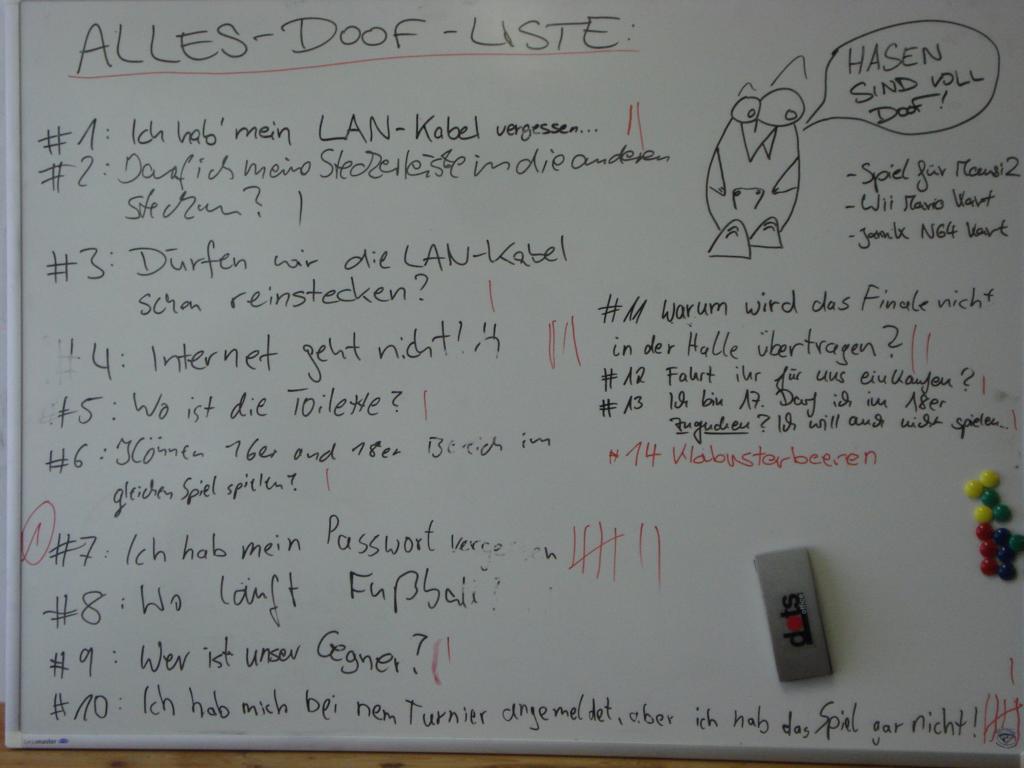 ALLES-DOOF-LISTE:
HASEN
SIND VOLL
DOOF!
#1: Ich hab' mein LAN-Kabel vergessen...
#2: Darf ich meine Steckerleiste in die anderen
stecken?
#3: Dürfen wir die LAN-Kabel
schon reinstecken?
#4: Internet geht nicht!
#5: Wo ist die Toilette?
#6: Können 16er und 18er Bereich im
gleichen Spiel spielen?
#7: Ich hab mein Passwort vergessen
#8: Wo läuft Fußball?
#9: Wer ist unser Gegner?
#10: Ich hab mich bei nem Turnier angemeldet, aber ich hab das Spiel gar nicht!
- Spiel für
- Wii Mario Kart
- Jannik N64 Kart
#11 Warum wird das Finale nicht
in der Halle übertragen?
#12 Fahrt ihr für uns einkaufen?
#13 Ich bin 17. Darf ich im 18er
zugucken? Ich will auch nicht spielen...
#14 Klabusterbeeren
dots